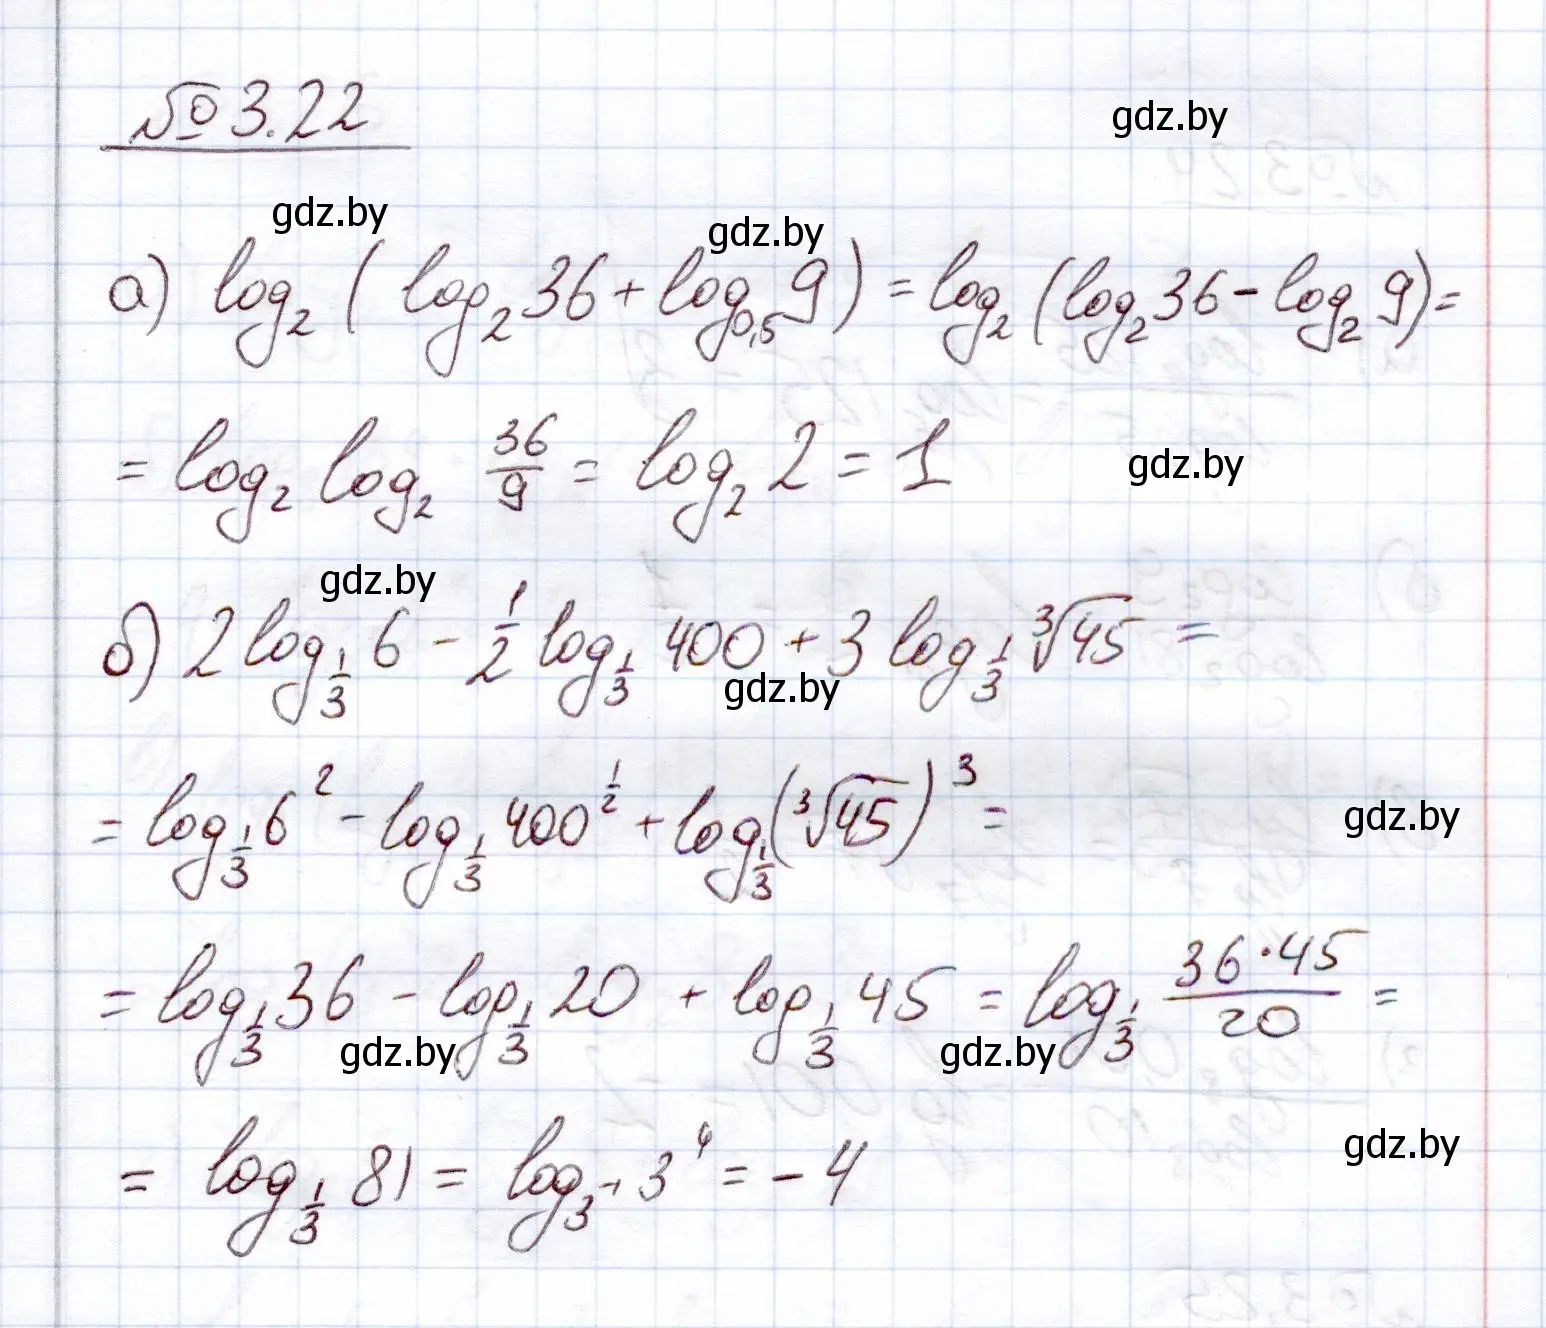 № 3.22
gdz.by
gdz.by
gdz.by
а) log₂ ( log₂ 36 + log₀,₅ 9 ) = log₂ (log₂ 36 - log₂ 9) =
= log₂ log₂ 36/9 = log₂ 2 = 1
gdz.by
gdz.by
б) 2 log_{1/3} 6 - 1/2 log_{1/3} 400 + 3 log_{1/3} ∛45 =
gdz.by
= log_{1/3} 6² - log_{1/3} 400^{1/2} + log_{1/3} (∛45)³ =
gdz.by
= log_{1/3} 36 - log_{1/3} 20 + log_{1/3} 45 = log_{1/3} 36·45/20 =
gdz.by
gdz.by
= log_{1/3} 81 = log_{3⁻¹} 3⁴ = - 4
gdz.by